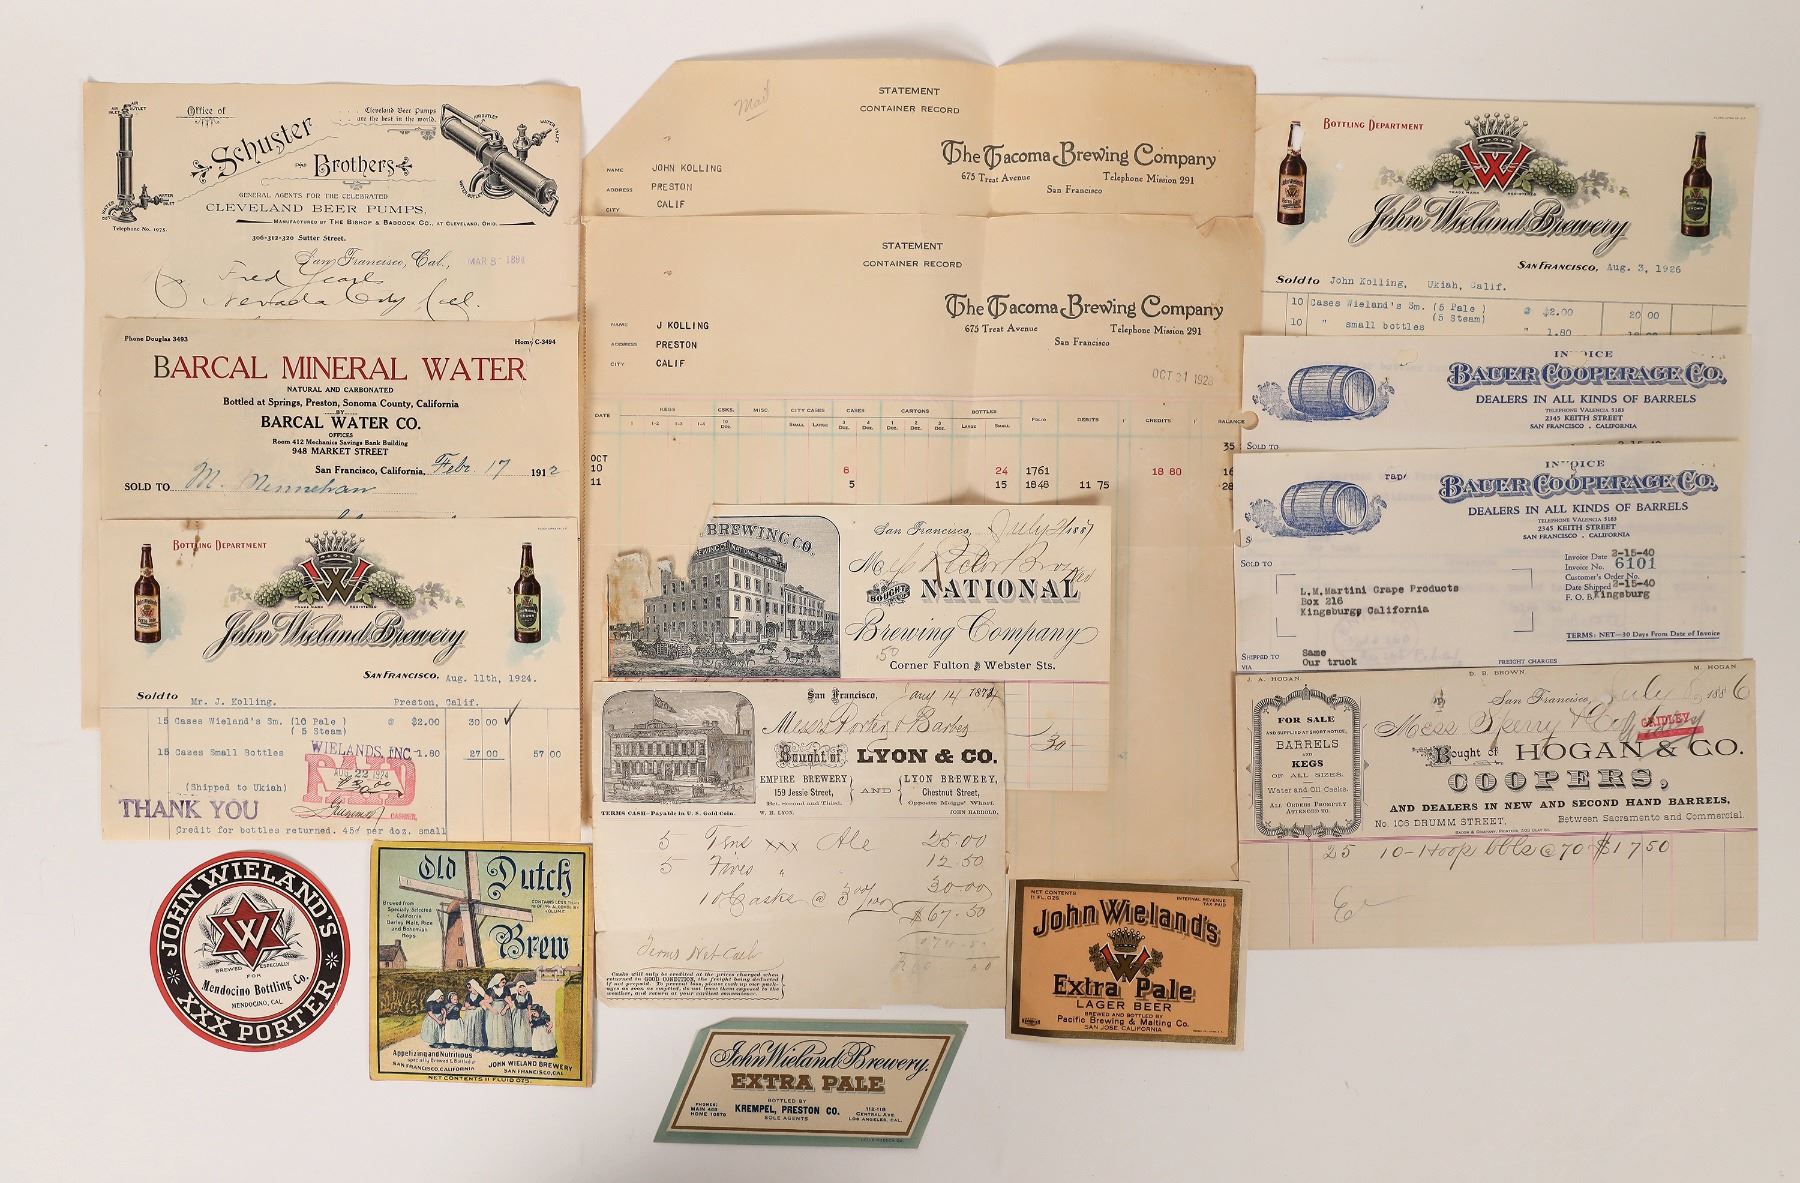 Office of
Cleveland Beer Pumps
are the best in the world.
AIR INLET
AIR OUTLET
AIR OUTLET
WATER INLET
Schuster
and Brothers
GENERAL AGENTS FOR THE CELEBRATED
CLEVELAND BEER PUMPS,
MANUFACTURED BY THE BISHOP & BABCOCK CO., AT CLEVELAND, OHIO.
Telephone No. 1975.
306-312-320 Sutter Street.
San Francisco, Cal., MAR 8
Fred
Nevada City Cal.
Phone Douglas 3493
Home C-3494
BARCAL MINERAL WATER
NATURAL AND CARBONATED
Bottled at Springs, Preston, Sonoma County, California
BY
BARCAL WATER CO.
OFFICES
Room 412 Mechanics Savings Bank Building
948 MARKET STREET
San Francisco, California, Febr. 17 1912
SOLD TO M.
BOTTLING DEPARTMENT
W
TRADE MARK REGISTERED
John Wieland Brewery
SAN FRANCISCO, Aug. 11th, 1924.
Sold to Mr. J. Kolling, Preston, Calif.
15 Cases Wieland's Sm. (10 Pale ) @ $2.00 30 00
( 5 Steam)
15 Cases Small Bottles 1.80 27 00 57 00
WIELANDS, INC
PAID
AUG 22 1924
CASHIER,
(Shipped to Ukiah)
THANK YOU
Credit for bottles returned. 45¢ per doz. small
STATEMENT
CONTAINER RECORD
Mail
The Tacoma Brewing Company
675 Treat Avenue Telephone Mission 291
San Francisco
NAME JOHN KOLLING
ADDRESS PRESTON
CITY CALIF
STATEMENT
CONTAINER RECORD
The Tacoma Brewing Company
675 Treat Avenue Telephone Mission 291
San Francisco
NAME J KOLLING
ADDRESS PRESTON
CITY CALIF
OCT 31 192
DATE KEGS CSKS. MISC. CITY CASES CASES CARTONS BOTTLES FOLIO DEBITS CREDITS BALANCE
1 1-2 1-4 1-8 10 Doz. SMALL LARGE 3 Doz. 4 Doz. 1 Doz. 2 Doz. 3 Doz. LARGE SMALL
35
OCT
10 6 24 1761 18 80 16
11 5 15 1848 11 75 28
BREWING CO.
San Francisco, July 1887
M
BOUGHT OF NATIONAL
Brewing Company
Corner Fulton and Webster Sts.
30
San Francisco, Jany 14 187
Messrs Porter & Barbes
Bought of LYON & CO.
EMPIRE BREWERY AND LYON BREWERY,
159 Jessie Street, Chestnut Street,
Bet. Second and Third. Opposite Meiggs' Wharf.
TERMS CASH—Payable in U. S. Gold Coin. W. H. LYON. JOHN BARDOLD.
5 Tens xxx Ale 25.00
5 Fives " 12.50
10 Casks @ 3 30.00
$67.50
Terms Net Cash
Casks will only be credited at the prices charged when
returned in GOOD CONDITION, the freight being deducted
if not prepaid. To prevent loss, please cork up our packages
as soon as emptied, do not leave them exposed to the
weather, and return at your earliest convenience.
BOTTLING DEPARTMENT
W
TRADE MARK REGISTERED
John Wieland Brewery
SAN FRANCISCO, Aug. 3, 1926
Sold to John Kolling, Ukiah, Calif.
10 Cases Wieland's Sm. (5 Pale ) @ $2.00 20 00
(5 Steam)
10 " small bottles " 1.80
INVOICE
BAUER COOPERAGE CO.
DEALERS IN ALL KINDS OF BARRELS
TELEPHONE VALENCIA 5183
2345 KEITH STREET
SAN FRANCISCO - CALIFORNIA
SOLD TO
2-15-40
INVOICE
rap/
BAUER COOPERAGE CO.
DEALERS IN ALL KINDS OF BARRELS
TELEPHONE VALENCIA 5183
2345 KEITH STREET
SAN FRANCISCO - CALIFORNIA
SOLD TO
L.M.Martini Grape Products
Box 216
Kingsburg, California
Invoice Date 2-15-40
Invoice No. 6101
Customer's Order No.
Date Shipped 2-15-40
F. O. B. Kingsburg
TERMS: NET—30 Days From Date of Invoice
SHIPPED TO Same
VIA Our truck
FREIGHT CHARGES
J. A. HOGAN. D. E. BROWN. M. HOGAN.
San Francisco, July 1886
Mess Sperry & Co
GRIDLEY
Bought of HOGAN & CO.
COOPERS,
AND DEALERS IN NEW AND SECOND HAND BARRELS,
No. 106 DRUMM STREET, Between Sacramento and Commercial.
FOR SALE
AND SUPPLIED AT SHORT NOTICE,
BARRELS
AND
KEGS
OF ALL SIZES.
Water and Oil Casks.
ALL ORDERS PROMPTLY
ATTENDED TO.
25 10-Hoop bbls @ 70 $17 50
JOHN WIELAND'S
W
BREWED ESPECIALLY
FOR
Mendocino Bottling Co.
MENDOCINO, CAL.
XXX PORTER
Old Dutch
Brew
Brewed from
Specially Selected
California
Barley Malt, Rice
and Bohemian
Hops.
Appetizing and Nutritious
Specially Brewed & Bottled at
SAN FRANCISCO, CALIFORNIA
JOHN WIELAND BREWERY
SAN FRANCISCO, CAL.
NET CONTENTS 11 FLUID OZS.
NET CONTENTS
11 FL. OZS.
INTERNAL REVENUE
TAX PAID
John Wieland's
W
Extra Pale
LAGER BEER
BREWED AND BOTTLED BY
Pacific Brewing & Malting Co.
SAN JOSE, CALIFORNIA
John Wieland Brewery.
EXTRA PALE
BOTTLED BY
KREMPEL, PRESTON CO.
SOLE AGENTS
PHONES:
MAIN 468
HOME 10870
112-118
CENTRAL AVE.
LOS ANGELES, CAL.